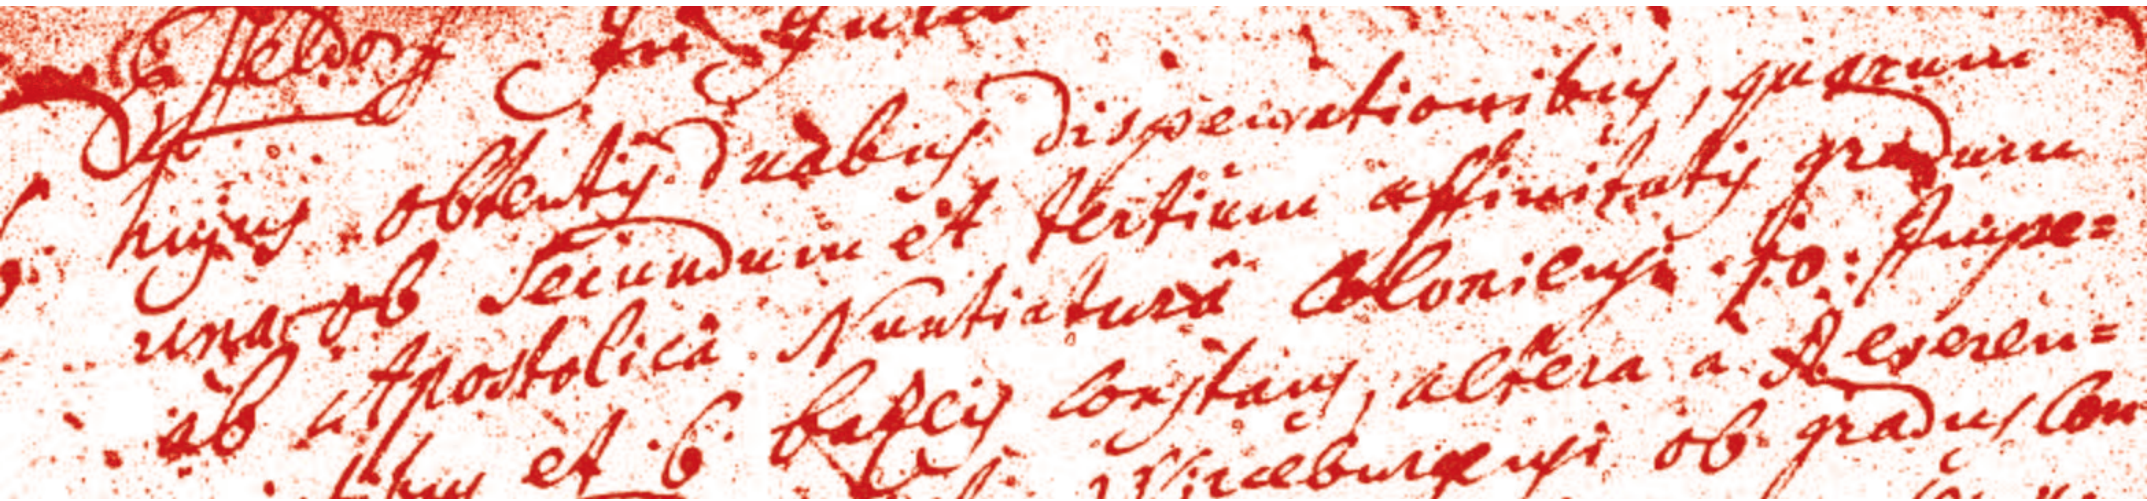 Effeldorf
hujus obtentis duabus dispensationibus, quarum
una ob secundum et tertium affinitatis gradum
ab Apostolicâ Nuntiaturâ Coloniensi 10: Impe=
et 6 bazeis constans, altera a Reveren=
Wirceburgensi ob gradus Con